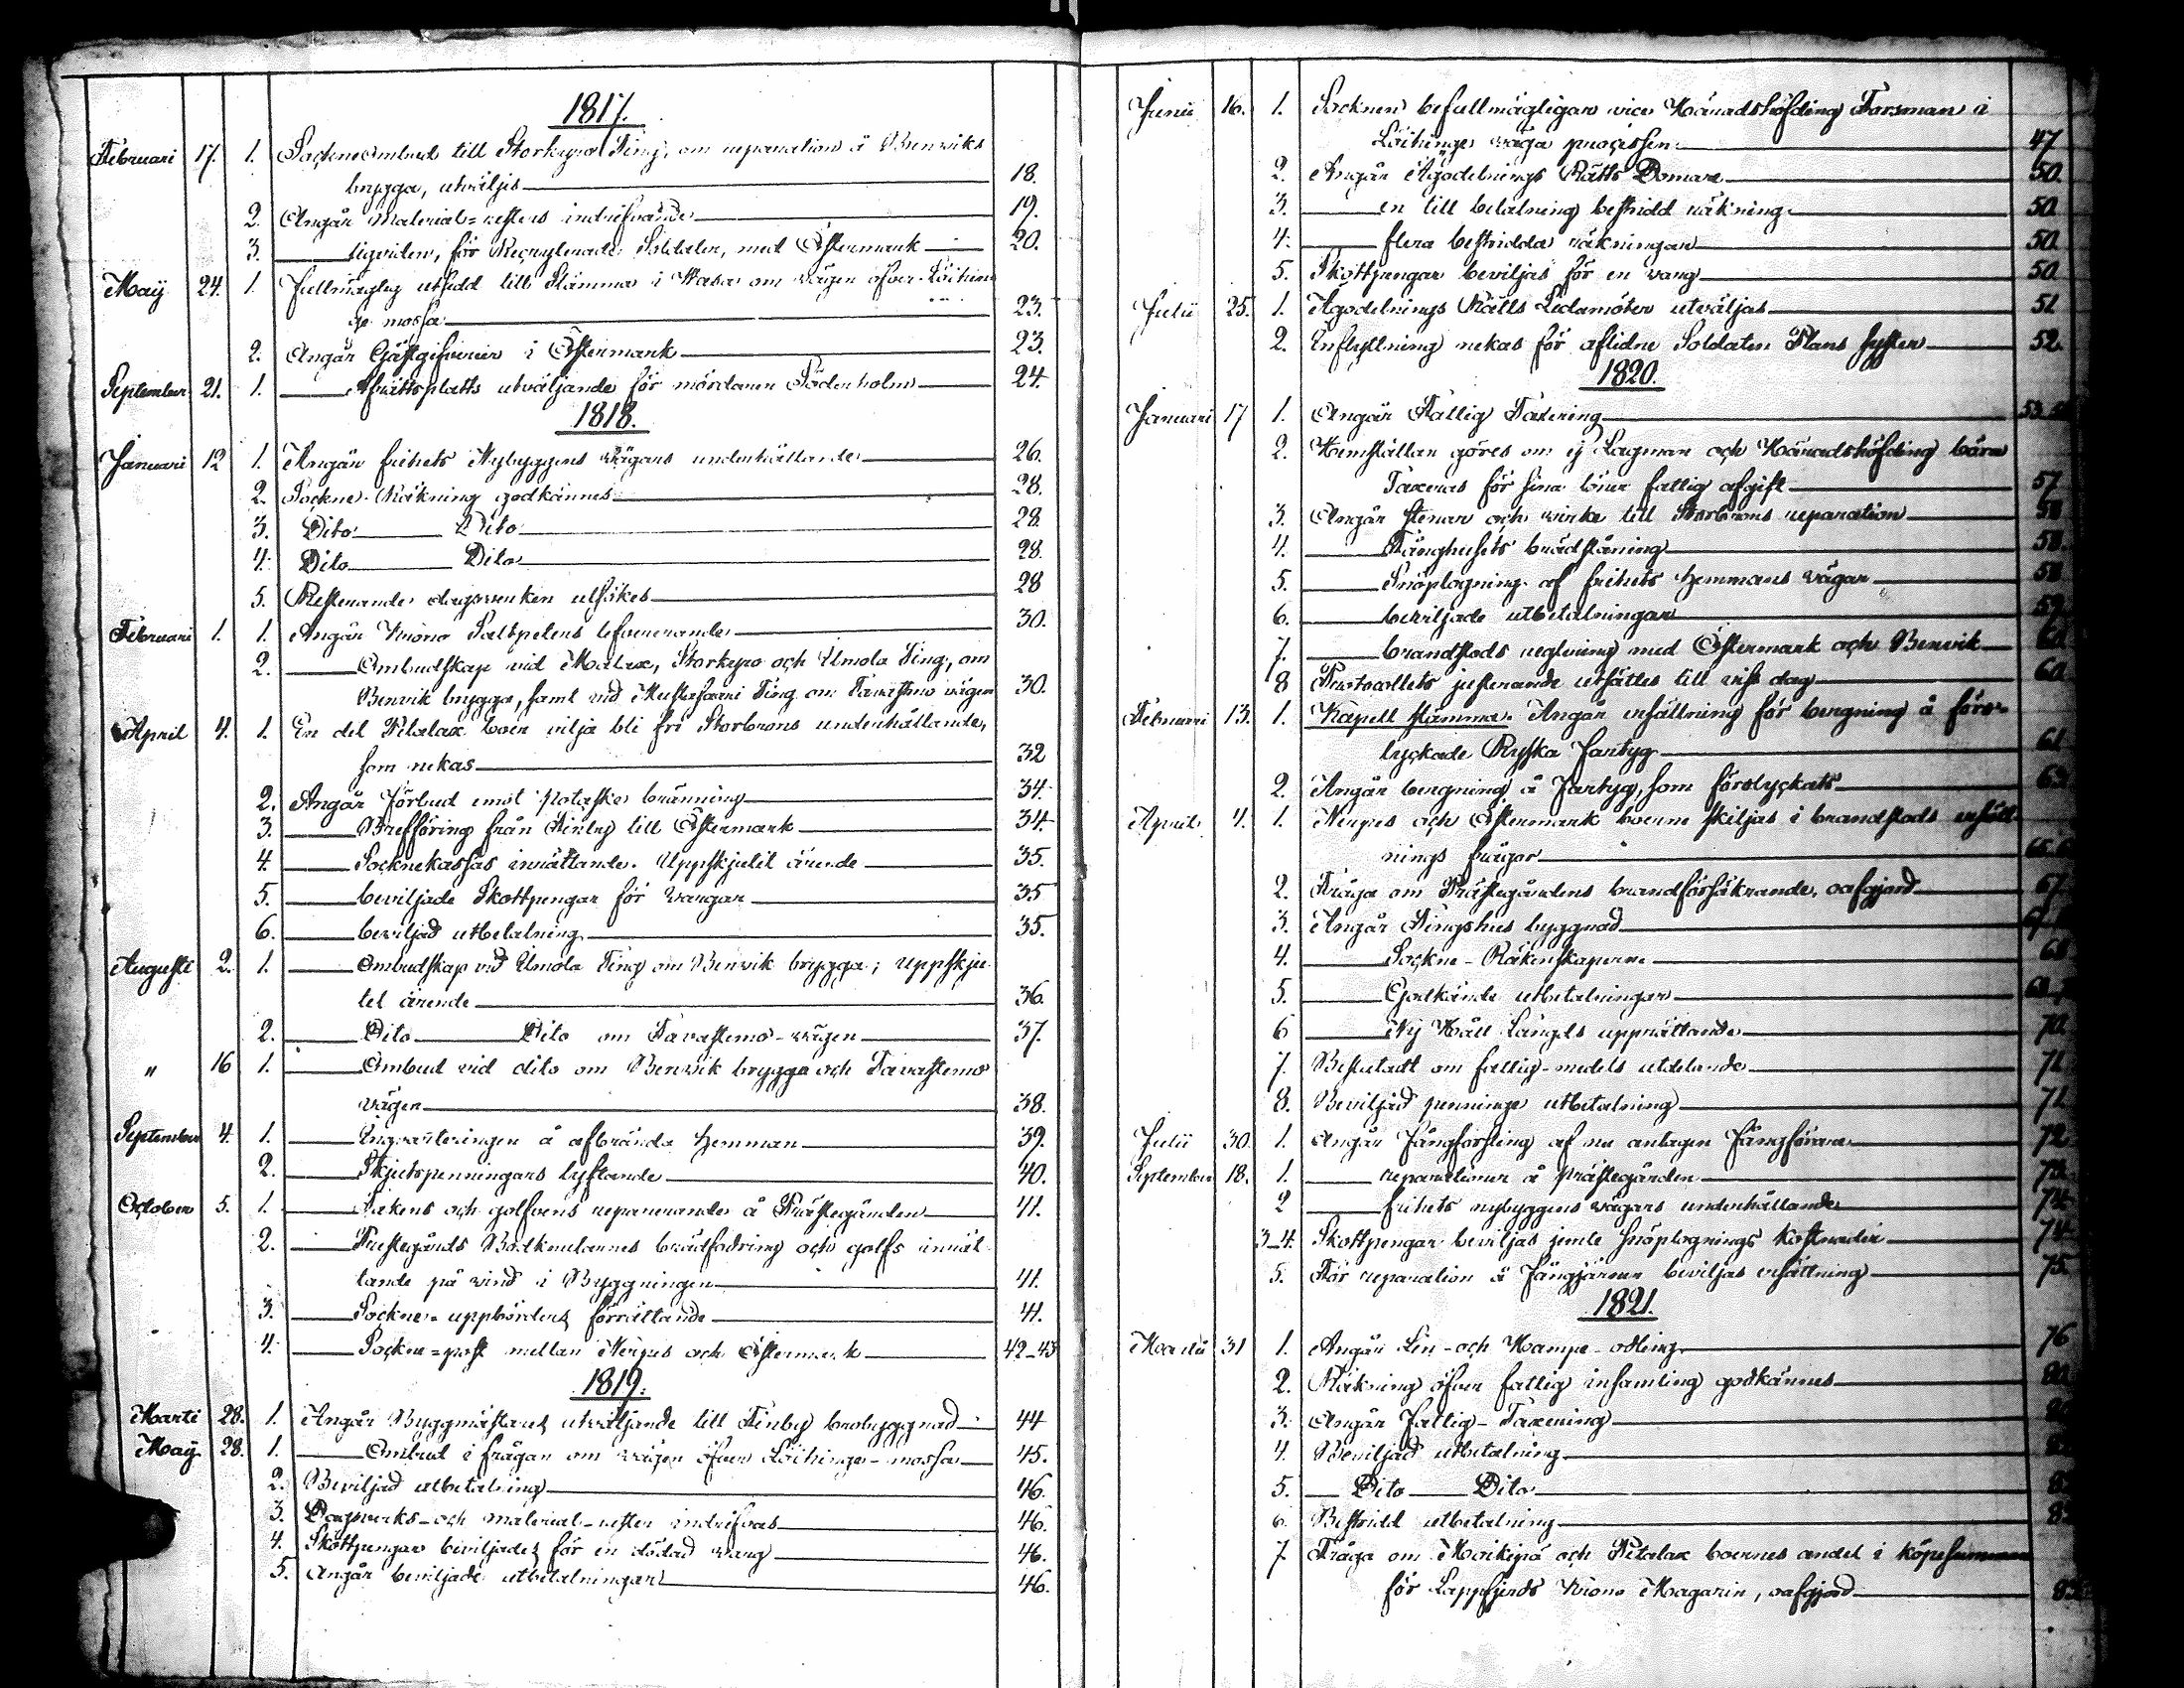 1817.
Februari 17. 1. Sockneombud till Storkyro Ting, om reparation å Benviks
brygga, utväljes 18.
2. Angår Material-resters indrifvande 19.
3. liqviden, för Recryterade Soldater, med Östermark 20.
Maij 24. 1. Fullmägtig utsedd till Stämma i Wasa om vägen öfver Löihin
ge mossa 23.
2. Angår Gästgifverier i Östermark 23.
September 21. 1. Afrättsplatts utväljande för mördaren Söderholm 24.
1818.
Januari 12 1. Angår frihets Nybyggens vägars underhållande 26.
2. Sockne-Räkning godkännes 28.
3. Dito Dito 28.
4. Dito Dito 28.
5. Resterande dagsverken utsökes 28
Februari 1. 1. Angår Krono Saltpeters lefvererande 30.
2. Ombudskap vid Malax, Storkyro och Ilmola Ting, om
Benvik brygga, samt vid Mustasaari Ting om Tavastmo vägen 30.
April 4. 1. En del Petalax boer vilja bli fri Storbrons underhållande,
som nekas 32
2. Angår Förbud emot Potaske bränning 34.
3. Brefföring från Finby till Östermark 34.
4. Socknekassas inrättande. Uppskjutit ärende 35.
5. beviljade Skottpengar för Vargar 35
6. beviljad utbetalning 35.
Augusti 2. 1. Ombudskap vid Ilmola Ting om Benvik brygga; uppskju
tet ärende 36.
2. Dito Dito om Tavastemo-vägen 37.
" 16 1. Ombud vid dito om Benvik brygga och Tavastemo
vägen 38.
September 4. 1. Inqvarteringen å afbrända hemman 39.
2. Skjutspenningars lyftande 40.
October 5. 1. Takens och golfvens reparerande å Prästegården 41.
2. Prestegårds Bodknutarnes brädfodring och golfs inrät
tande på vind i Byggningen 41.
3. Sockne-uppbördens förrättande 41.
4. Sockne-post mellan Nerpes och Östermark 42-43
1819.
Marti 28. 1. Angår Byggmästares utväljande till Finby brobyggnad 44
Maij 28. 1. Ombud i frågan om vägen öfver Löihinge-mossa 45.
2. Beviljad utbetalning 46.
3. Dagsverks- och material-rester indrifvas 46.
4. Skottpengar beviljades för en dödad varg 46.
5. Angår beviljade utbetalningar 46.
Junii 16. 1. Socknen befullmägtigar vice Häradshöfding Forsman i
Löihinge väga processen 47
2. Angår Ägodelnings Rätts Domare 50.
3. en till betalning bestridd räkning 50.
4. flera bestridda räkningar 50.
5. Skottpengar beviljas för en varg 50.
Julii 25. 1. Ägodelnings Rätts Ledamöter utväljas 51
2. Inflyttning nekas för aflidne Soldaten Flans syster 52.
1820.
Januari 17 1. Angår Fattig Taxering 53
2. Hemställan göres om ej Lagman och Häradshöfding böra
Taxeras för sina löner fattig afgift 57
3. Angår stenar och virke till Storbrons reparation 58
4. Fånghusets brädslåning 58.
5. Snöplogning af frihets hemmans vägar 58
6. beviljade utbetalningar 59.
7. brandstods reglering med Östermark och Benvik 60.
8 Protocollets justerande utsättes till viss dag 60.
Februari 13. 1. Kapell stämma. Angår ersättning för bergning å föro-
lyckade Ryska Fartyg 61
2. Angår bergning å Fartyg, som förolyckats 63.
April 4. 1. Nerpes och Östermark boerne skiljas i brandstods ersätt
nings frågor 65
2. Fråga om Prästegårdens brandförsäkrande, oafgjord 67.
3. Angår Tingshus byggnad 67
4. Sockne-Räkenskaperne 68
5. Godkände utbetalningar 69
6 Ny Håll Längds upprättande 70.
7. Beslutadt om fattig-medels utdelande 71.
8. Beviljad penninge utbetalning 71.
Julii 30. 1. Angår Fångforsling af nu antagen Fångförare 72.
September 18. 1. reparationer å prästegården 73.
2 frihets nybyggens vägars underhållande 74.
3-4. Skottpengar beviljas jemte Snöplognings kostnader 74.
5. För reparation å fångjärner beviljas ersättning 75.
1821.
Martii 31 1. Angår Lin- och Hampe-odling 76
2. Räkning öfver fattig insamling godkännes 80.
3. Angår Fattig-Taxering
4. Beviljad utbetalning
5. Dito Dito
6. Bestridd utbetalning
7. Fråga om Moikipä och Petalax boernes andel i köpesumman
för Lappfjerds Krono Magazin, oafgjord